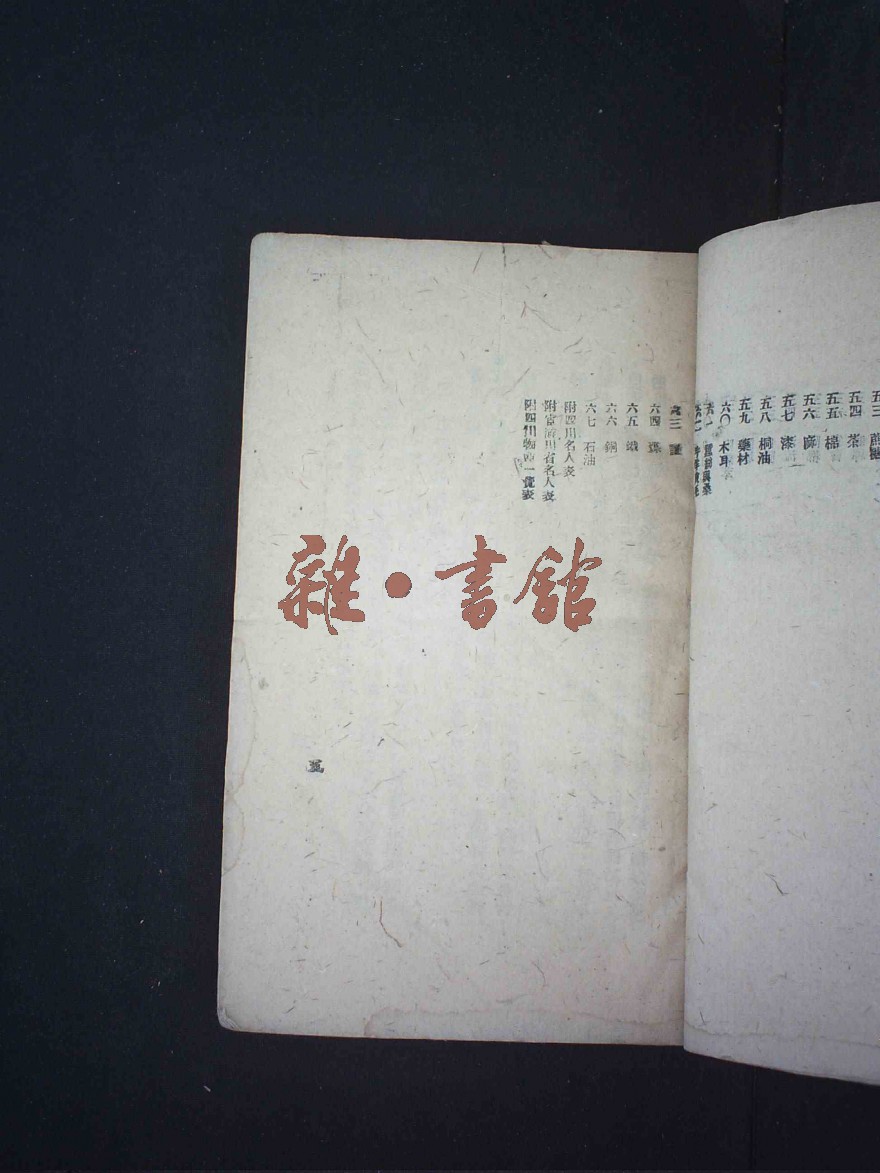 五三
五四 茶
五五 棉
五六
五七 漆
五八 桐油
五九 藥材
六〇 木耳
六一
六三 鹽
六四 煤
六五 鐵
六六 銅
六七 石油
附四川名人表
附官游川省名人表
附四川物產一覽表
五
雜·書館